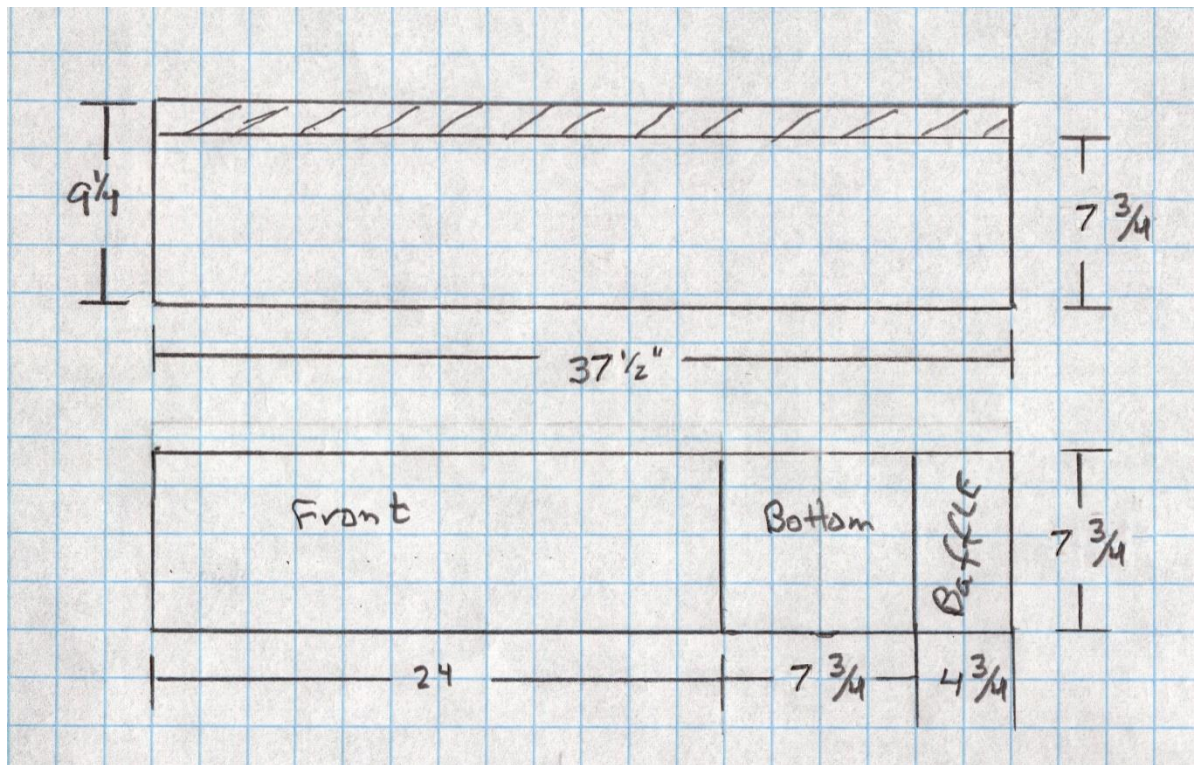 9 1/4
7 3/4
37 1/2"
Front
Bottom
Baffle
7 3/4
24
7 3/4
4 3/4